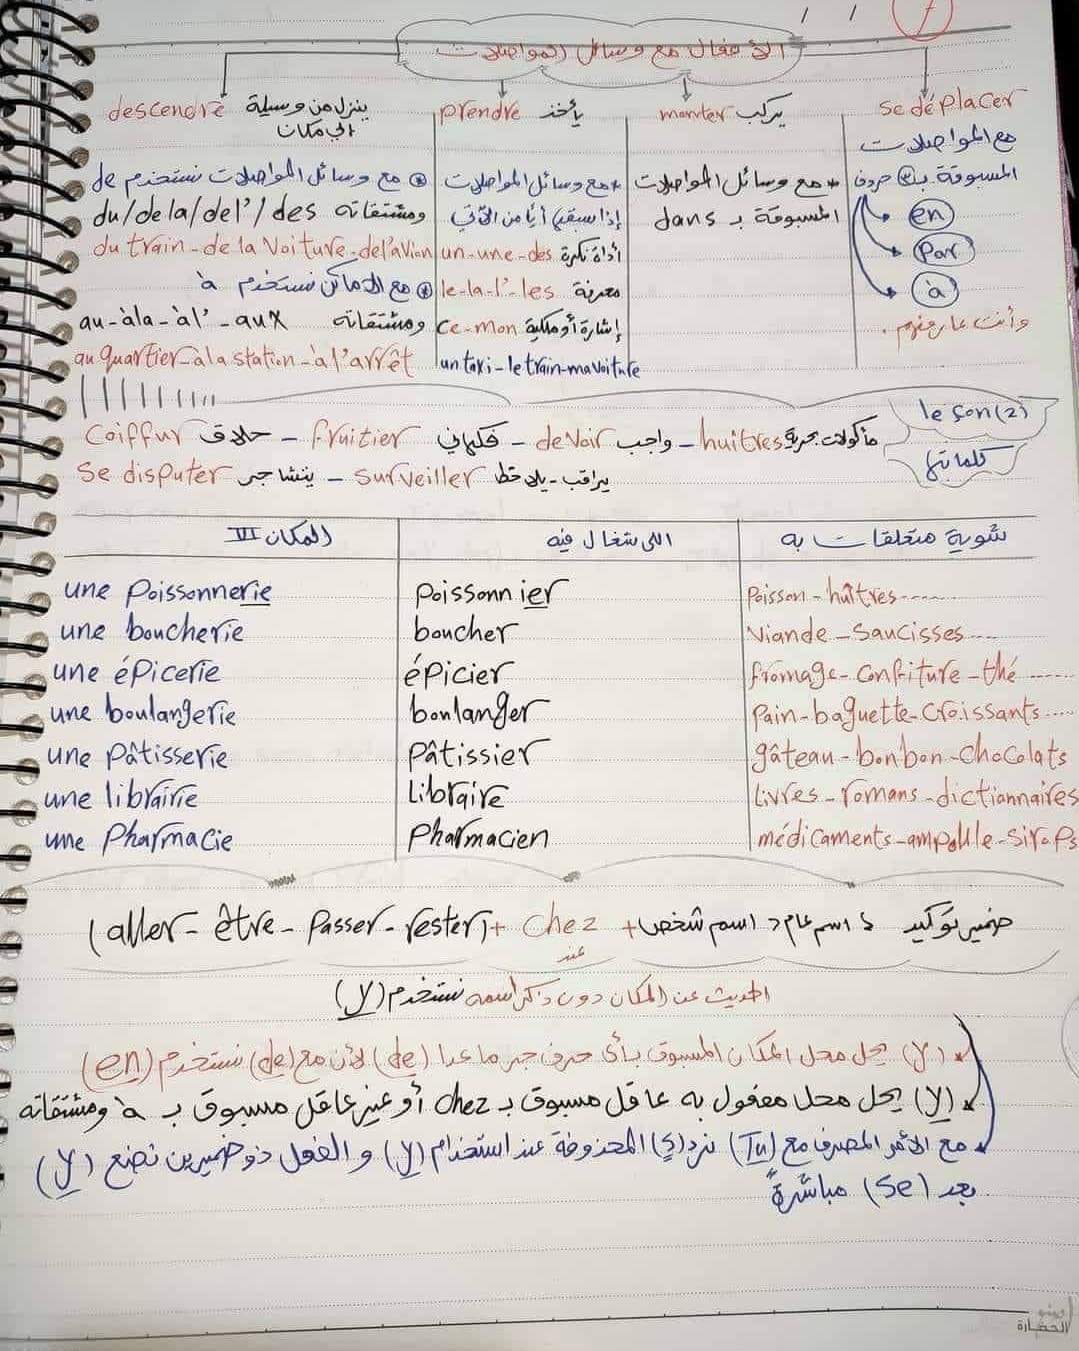 الأفعال مع وسائل المواصلات
se déplacer
مع المواصلات
المسبوقة بـ 3 حروف
en
Par
à
وأنت عارفهم.
monter يركب
* مع وسائل المواصلات
المسبوقة بـ dans
prendre يأخذ
* مع وسائل المواصلات
إذا سبقها أيًا من الآتي
un-une-des أداة نكرة
le-la-l'-les معرفة
ce-mon إشارة أو ملكية
un taxi-le train-ma voiture
descendre ينزل من وسيلة
إلى مكان
مع وسائل المواصلات نستخدم de
du/de la/de l'/des ومشتقاته
du train-de la voiture-de l'avion
مع الأماكن نستخدم à
au-à la-à l'-aux ومشتقاته
au quartier-à la station-à l'arrêt
leçon(2)
كلماتها
Coiffur حلاق - fruitier فكهاني - devoir واجب - huîtres مأكولات بحرية
se disputer يتشاجر - surveiller يراقب - يلاحظ
المكان VI | اللى شغال فيه | شوية متعلقات به
une Poissonnerie | Poissonnier | Poisson-huîtres------
une boucherie | boucher | Viande-Saucisses---
une épicerie | épicier | fromage-confiture-thé------
une boulangerie | boulanger | Pain-baguette-croissants----
une Pâtisserie | Pâtissier | gâteau-bonbon-chocolats
une librairie | Libraire | Livres-romans-dictionnaires
une Pharmacie | Pharmacien | médicaments-ampoule-sirops
(aller-être-Passer-rester) + chez + اسم شخص > اسم عام > ضمير توكيد
عند
الحديث عن المكان دون ذكر اسمه نستخدم (y)
(y) يحل محل المكان المسبوق بأى حرف جر ما عدا (de) لأن مع (de) نستخدم (en)
(y) يحل محل مفعول به عاقل مسبوق بـ chez أو غير عاقل مسبوق بـ à ومشتقاته
مع الأمر المصرف مع (Tu) نرد (s) المحذوفة عند استخدام (y) و الفعل ذو ضميرين نضع (y)
بعد (se) مباشرةً
الحضارة